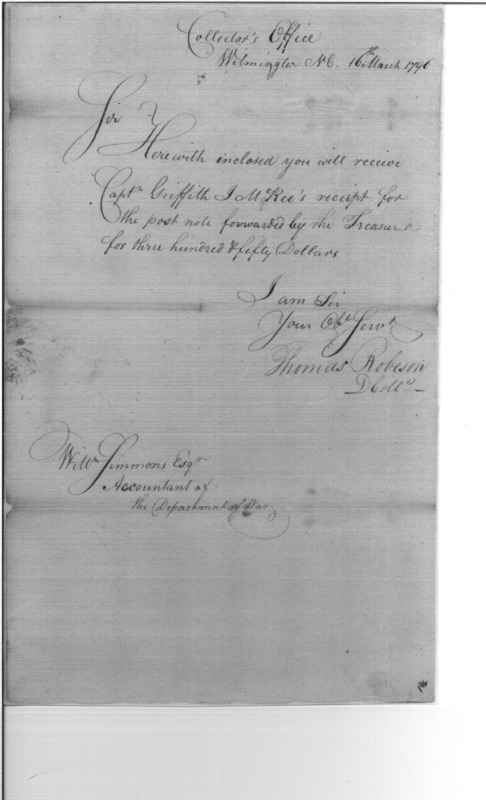 Collector's Office
Wilmington N.C. 16th March 1796
Sir
Herewith inclosed you will receive
Captn Griffith J McRee's receipt for
the post note forwarded by the Treasurer
for three hundred & fifty Dollars
I am Sir
Your Obt Servt
Thomas Robeson
D Collr
Willm Simmons Esqr
Accountant of
the Department of War